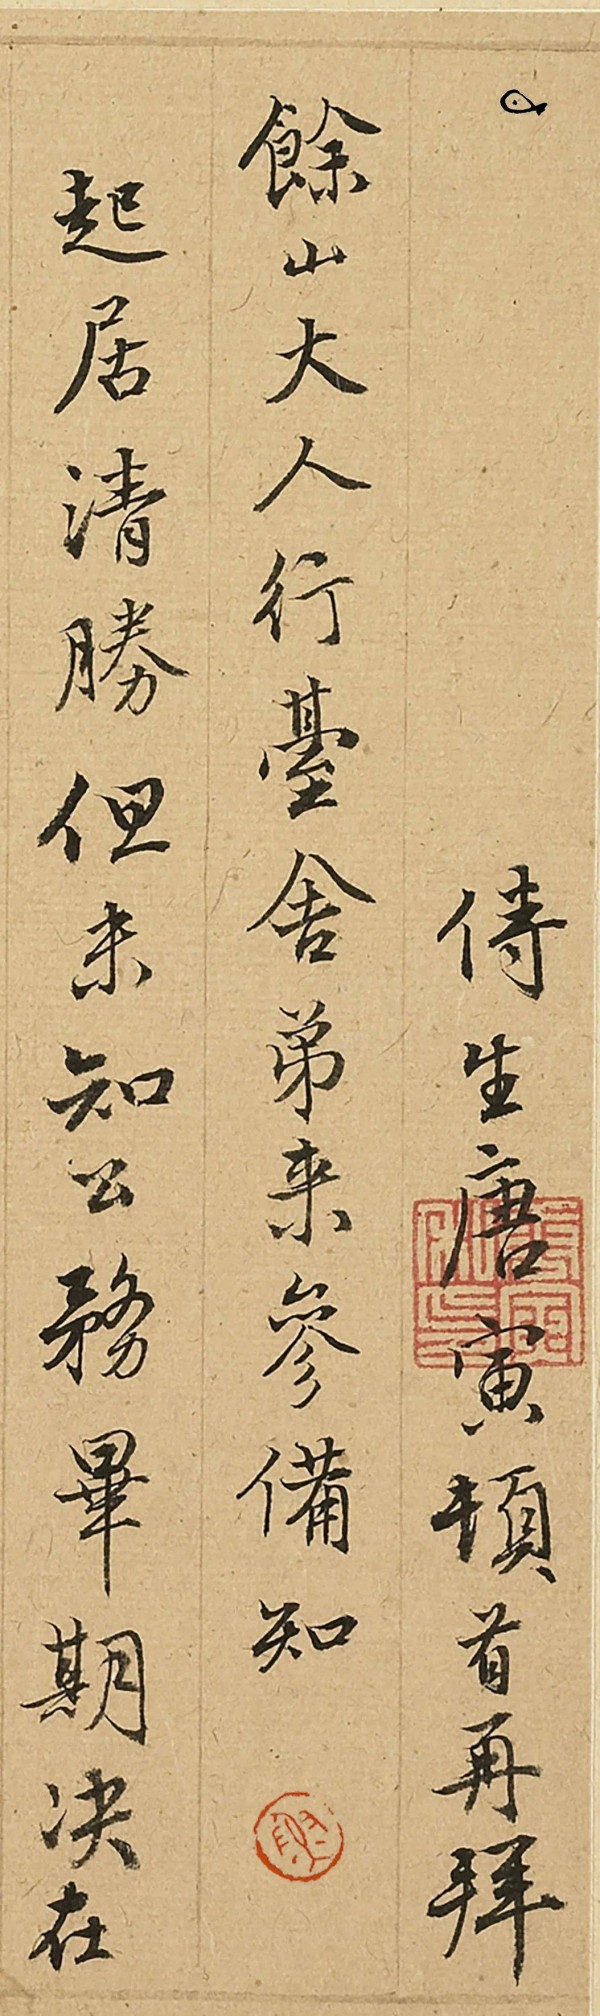 侍生唐寅頓首再拜
餘山大人行臺舍弟来參備知
起居清勝但未知公務畢期决在